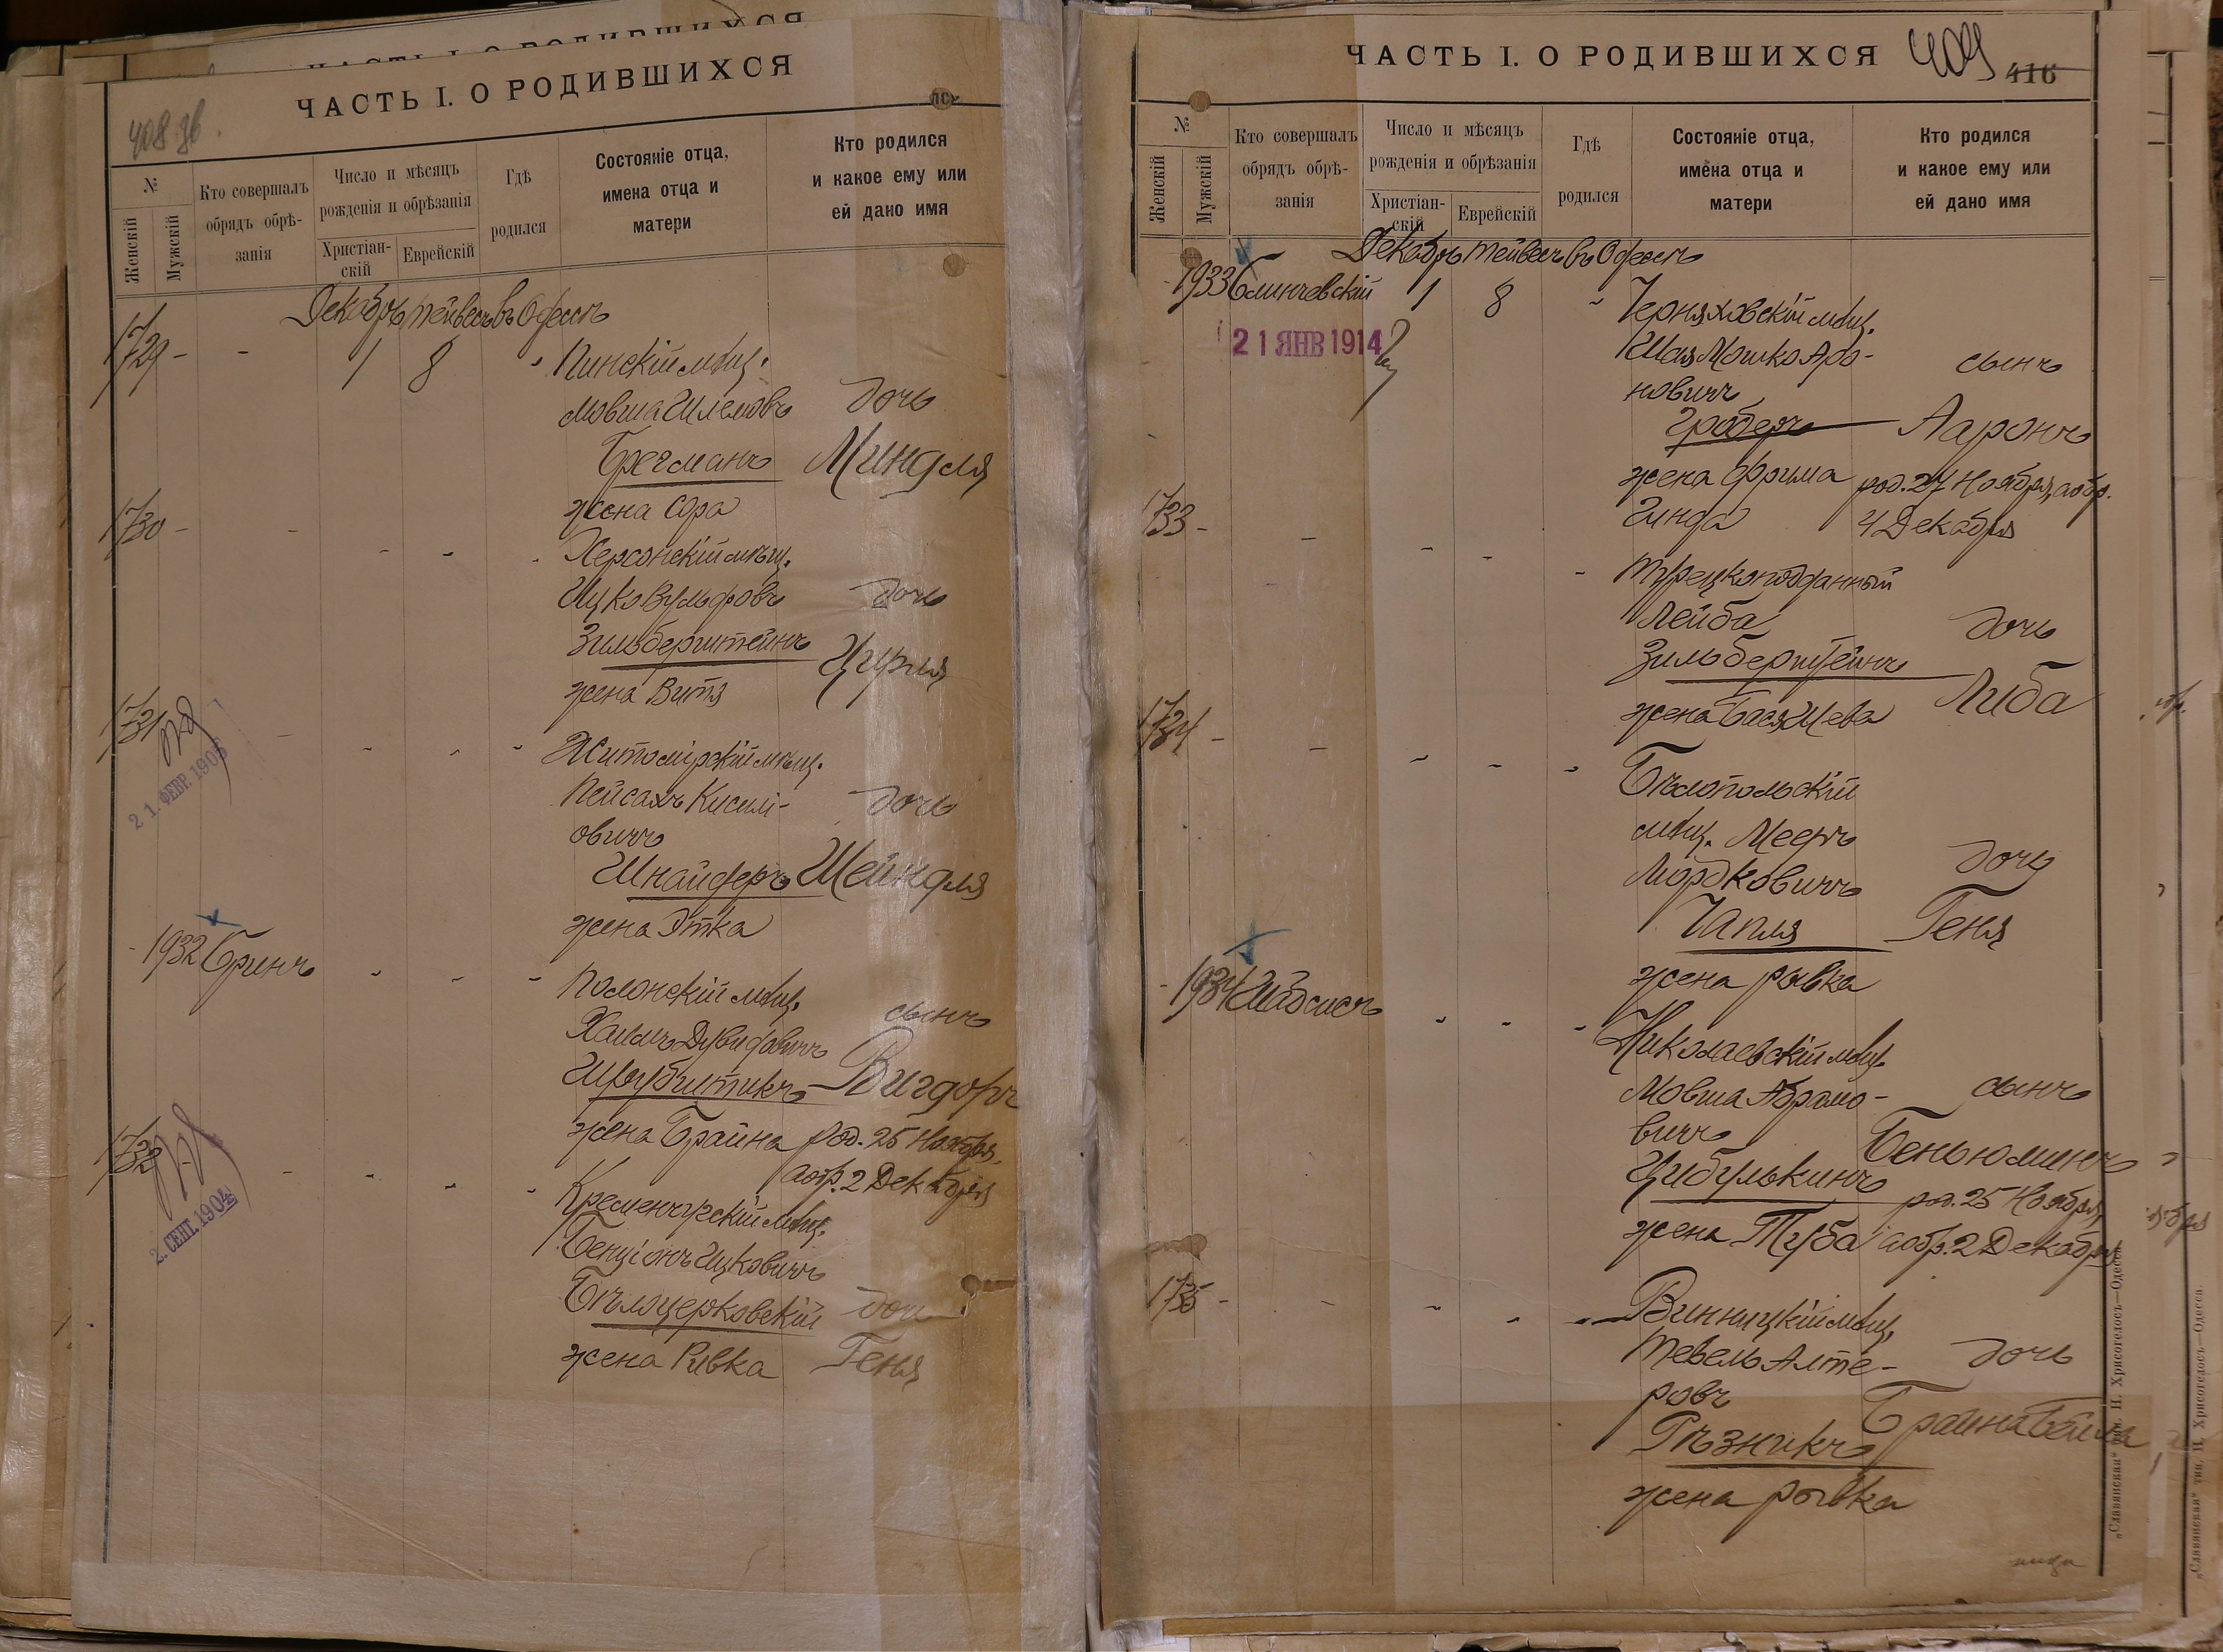 ЧАСТЬ I. О РОДИВШИХСЯ
408 зв.
№
Женскій
Мужскій
Кто совершалъ обрядъ обрѣ-
занія
Число и мѣсяцъ
рожденія и обрѣзанія
Христіан-
скій
Еврейскій
Гдѣ
родился
Состояніе отца,
имена отца и
матери
Кто родился
и какое ему или
ей дано имя
Декабрь Тейвесъ въ Одессѣ
1729 - - 1 8 " Пинскій мѣщ.
Мовша Шлемовъ дочь
Брегманъ Миндля
жена Сора
1730 - - - - - Херсонскій мѣщ.
Ицко Вульфовъ дочь
Зильберштейнъ Цирля
жена Витя
1731 - - - - Житомірскій мѣщ.
21. ФЕВР. 1906
Пейсахъ Кисилі- дочь
овичъ
Шнайдеръ Шейндля
жена Этка
- 1932 Бринъ - - - Полонскій мѣщ.
Хаимъ Дувидовичъ сынъ
Шрубштикъ Вигдоръ
жена Брайна род. 25 Ноября,
а обр. 2 Декабря
1732 - - - - Кременчугскій мѣщ.
2. СЕНТ. 1904
Бенціонъ Ицковичъ
Бѣлоцерковскій дочь
жена Ривка Геня
ЧАСТЬ I. О РОДИВШИХСЯ
409 416
№
Женскій
Мужскій
Кто совершалъ
обрядъ обрѣ-
занія
Число и мѣсяцъ
рожденія и обрѣзанія
Христіан-
скій
Еврейскій
Гдѣ
родился
Состояніе отца,
имена отца и
матери
Кто родился
и какое ему или
ей дано имя
Декабрь Тейвесъ въ Одессѣ
- 1933 Слинчевскій 1 8 " Черняховскій мѣщ.
21 ЯНВ 1914
Шая Мошко Аро- сынъ
новичъ
Гроберъ Ааронъ
жена Фрима род. 27 Ноября, а обр.
Гинда 4 Декабря
1733 - - - - - Турецкоподданный
Лейба дочь
Зильберштейнъ
жена Бася Шева Либа
1734 - - - - - Бѣлопольскій
мѣщ. Мееръ
Мордковичъ дочь
Чапля Геня
жена Рывка
- 1934 Шабсисъ - - - Николаевскій мѣщ.
Мовша Абрамо- сынъ
вичъ Беньюминъ
Цибулькинъ род. 25 Ноября,
жена Туба а обр. 2 Декабря
1735 - - - - - Винницкій мѣщ.
Тевель Алте- дочь
ровъ
Рѣзникъ Брайна Бейла
жена Рывка
„Славянская" тип. Н. Хрисогелосъ—Одесса.
„Славянская" тип. Н. Хрисогелосъ—Одесса.